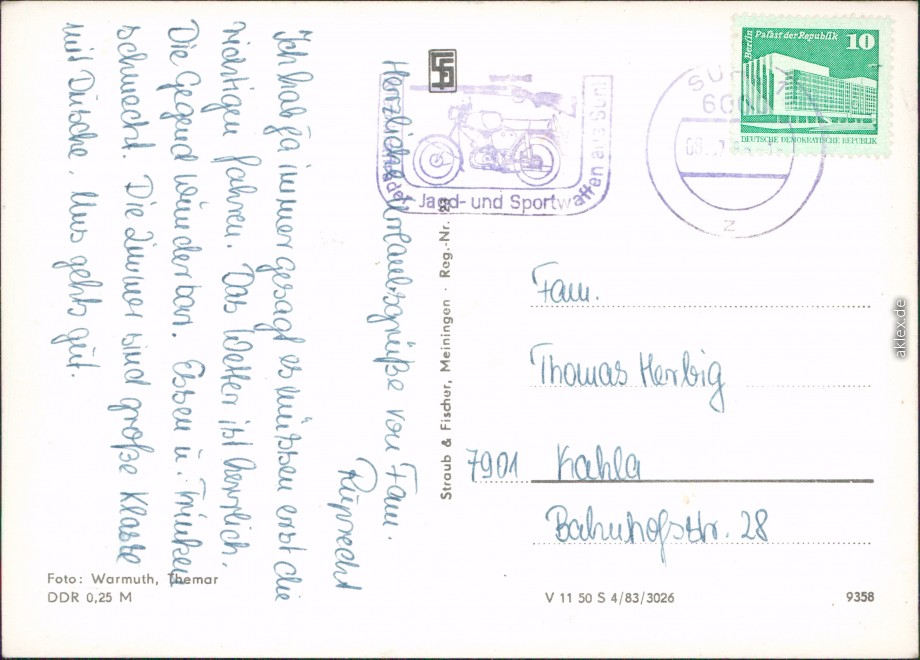 Herzliche Urlaubsgrüße von Fam.
Ruprecht
Ich hab ja immer gesagt es müssen erst die
richtigen fahren. Das Wetter ist herrlich.
Die Gegend wunderbar. Essen u. Trinken
schmeckt. Die Zimmer sind große Klasse
mit Dusche. Uns gehts gut.
Foto: Warmuth, Themar
DDR 0,25 M
Straub & Fischer, Meiningen · Reg.-Nr.
Jagd- und Sportwaffen aus Suhl
SUHL
Berlin Palast der Republik 10
DEUTSCHE DEMOKRATISCHE REPUBLIK
z
Fam.
Thomas Herbig
7901 Kahla
Bahnhofstr. 28
V 11 50 S 4/83/3026
9358
aklex.de